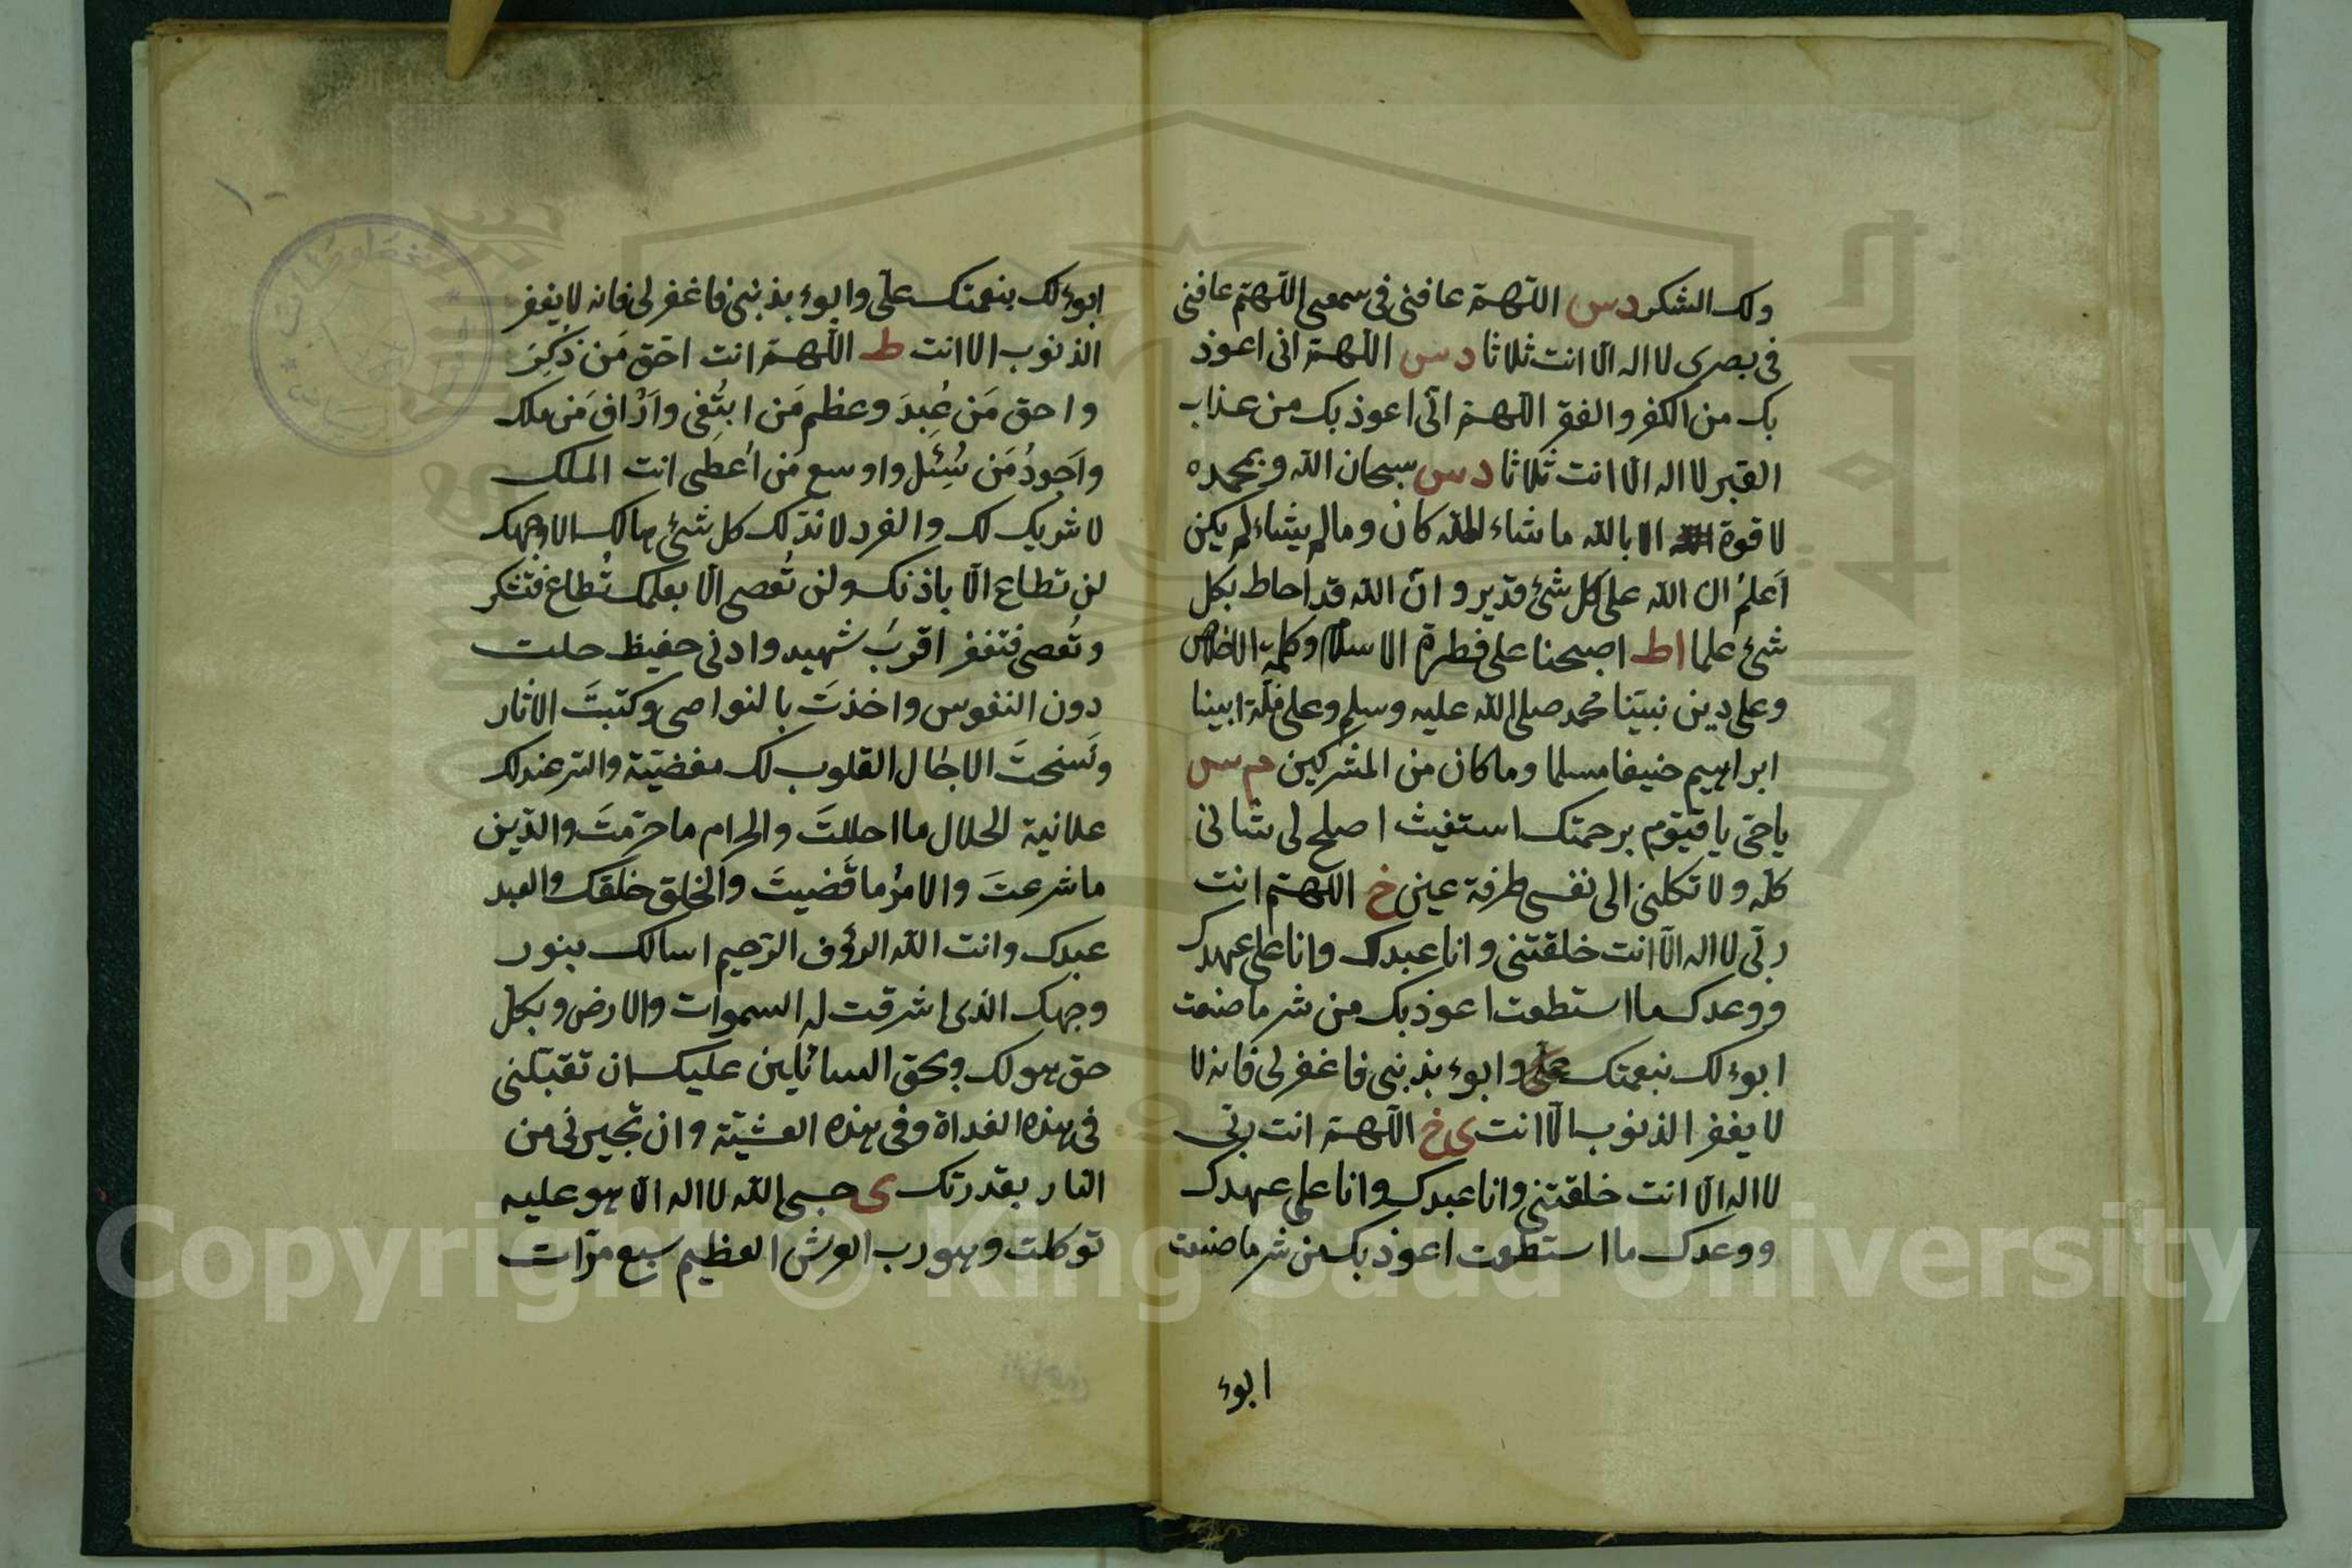 ولك الشكر دس اللهمّ عافنى فى سمعى اللهمّ عافنى
فى بصرى لا اله الّا انت ثلاثا دس اللهمّ انى اعوذ
بك من الكفر والفقر اللهمّ انّى اعوذ بك من عذاب
القبر لا اله الّا انت ثلاثا دس سبحان الله وبحمده
لا قوة الا بالله ما شاء الله كان وما لم يشاء لم يكن
اَعلمُ ان الله على كل شئ قدير وانّ الله قد احاط بكل
شئ علما اط اصبحنا على فطرة الاسلام وكلمة الاخلاص
وعلى دين نبيّنا محمد صلى الله عليه وسلم وعلى ملّة ابينا
ابراهيم حنيفا مسلما وما كان من المشركين م س
ياحىّ ياقيّوم برحمتك استغيث اصلح لى شانى
كلّه ولا تكلنى الى نفسى طرفة عين خ اللهمّ انت
ربّى لا اله الّا انت خلقتنى وانا عبدك وانا على عهدك
ووعدك ما استطعت اعوذ بك من شر ما صنعت
ابوء لك بنعمتك علىّ وابوء بذنبى فاغفر لى فانه لا
لا يغفر الذنوب الّا انت ى خ اللهمّ انت ربّى
لا اله الّا انت خلقتنى وانا عبدك وانا على عهدك
ووعدك ما استطعت اعوذ بك من شر ما صنعت
ابوء
١٠
ابوء لك بنعمتك علىّ وابوء بذنبى فاغفر لى فانه لا يغفر
الذنوب الا انت ط اللهمّ انت احَق مَن ذُكِرَ
واحق مَن عُبِدَ وعظم مَن ابتُغى واَرْاف مَن ملك
واَجودُ مَن سُئِل واوسع مَن اُعطى انت الملك
لا شريك لك والفرد لا ندّ لك كل شئ هالك الا وجهك
لن تطاع الّا باذنك ولن تُعصى الّا بعلمك تُطاع فتشكر
وتُعصى فتغفر اقربُ شهيد وادنى حفيظ حلت
دون النفوس واخذتَ بالنواصى وكتبتَ الاثار
ونَسختَ الاجال القلوب لك مفضيّة والسّر عندك
علانية الحلال ما احللتَ والحرام ما حرّمتَ والدّين
ما شرعتَ والامرُ ما قَضيتَ والخلق خلقك والعبد
عبدك وانت الله الرؤف الرّحيم اسالك بنور
وجهك الذى اشرقت له السموات والارض وبكل
حق هو لك وبحق السائلين عليك ان تقبلنى
فى هذه الغداة وفى هذه العشيّة وان تجيرنى من
النّار بقدرتك ى حسبى الله لا اله الّا هو عليه
توكلت وهو رب العرش العظيم سبع مرّات
Copyright © King Saud University